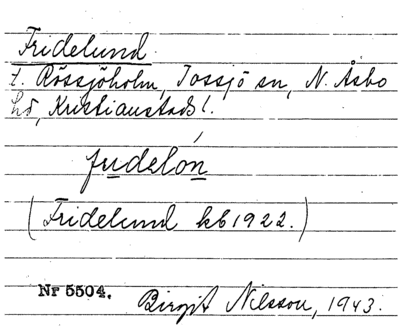 Fridelund
t. Rössjöholm, Tossjö sn, N. Åsbo
hd, Kristianstads l.
fudelón
(Fridelund kb 1922.)
Nr 5504. Birgit Nilsson, 1943.